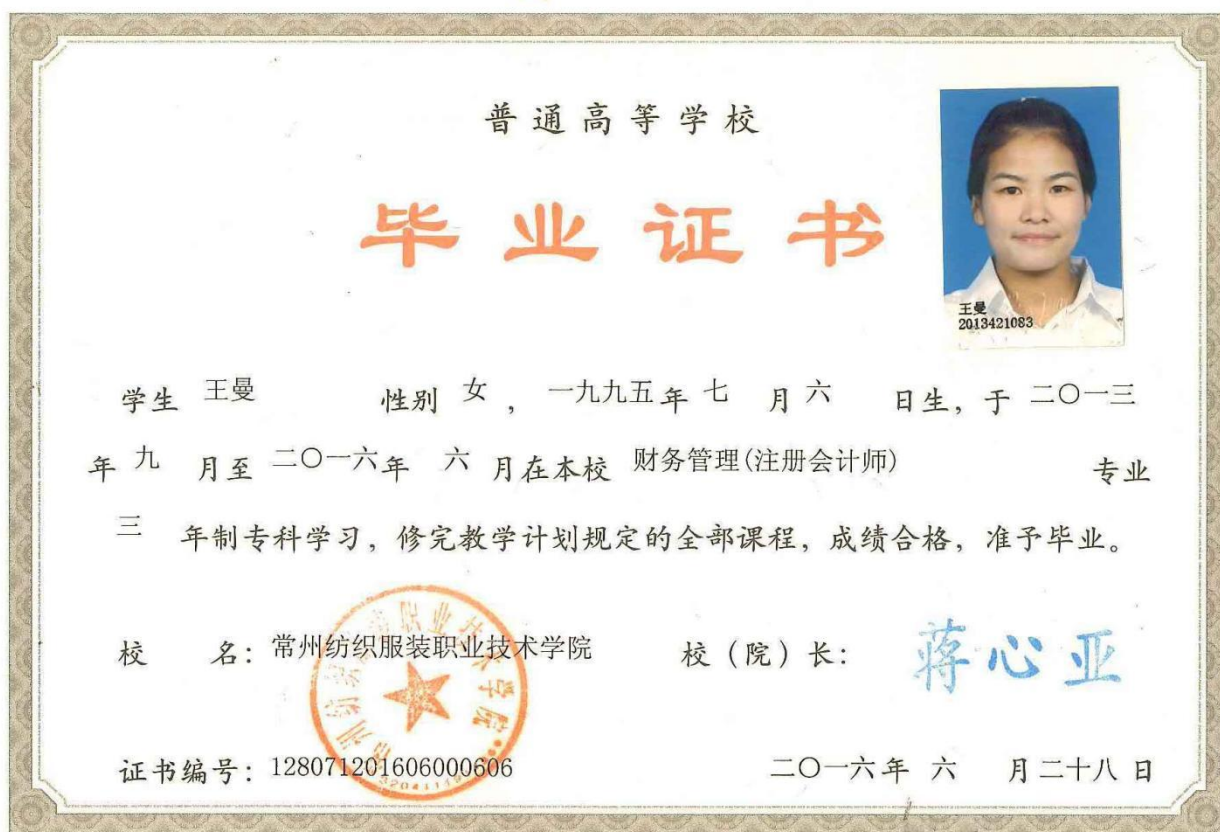 普通高等学校
毕业证书
王曼
2013421083
学生 王曼 性别 女 , 一九九五年 七 月 六 日生, 于 二〇一三
年 九 月至 二〇一六年 六 月在本校 财务管理(注册会计师) 专业
三 年制专科学习, 修完教学计划规定的全部课程, 成绩合格, 准予毕业。
校 名: 常州纺织服装职业技术学院 校(院)长: 蒋心亚
常州纺织服装职业技术学院
证书编号: 128071201606000606 二〇一六年 六 月二十八 日